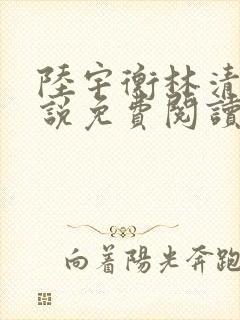 陸宇衡林清
說免費閱讀
向著陽光奔跑